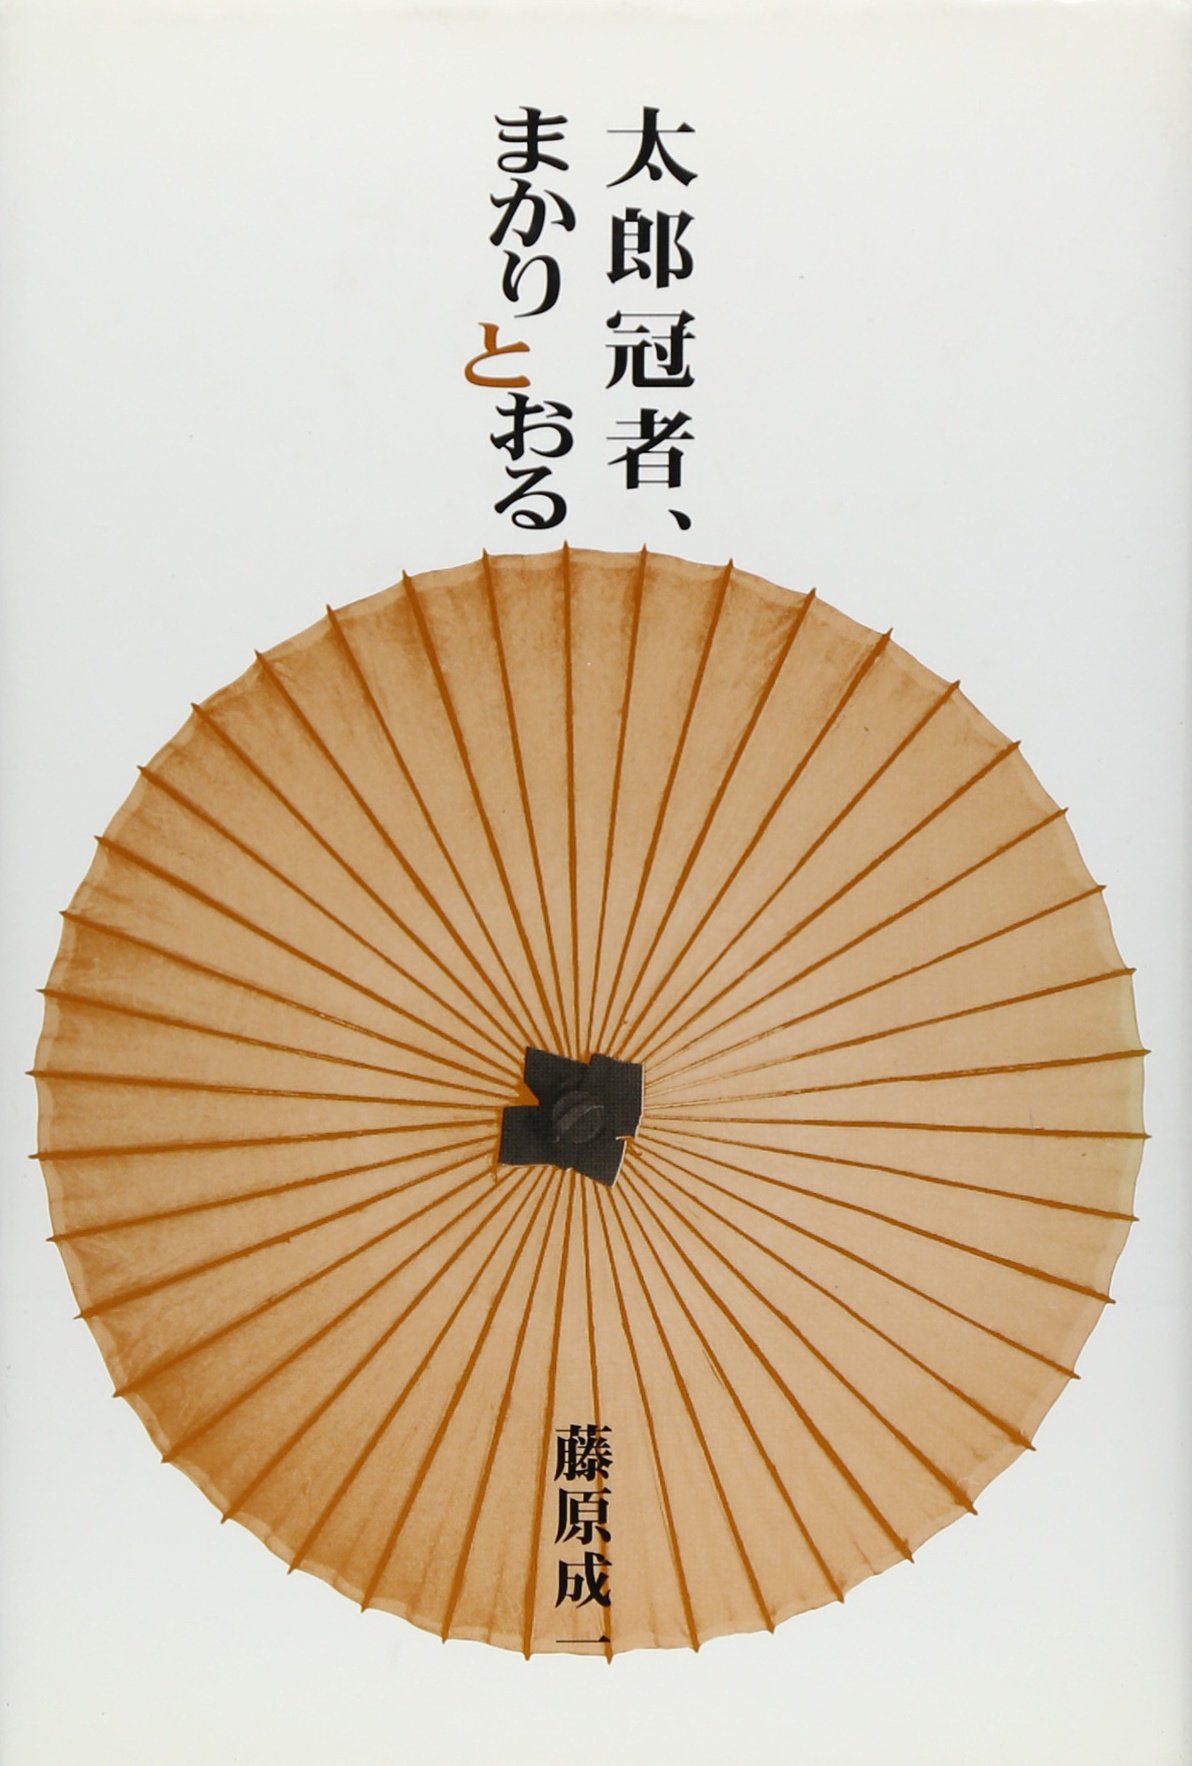 太郎冠者、
まかりとおる
藤原成一